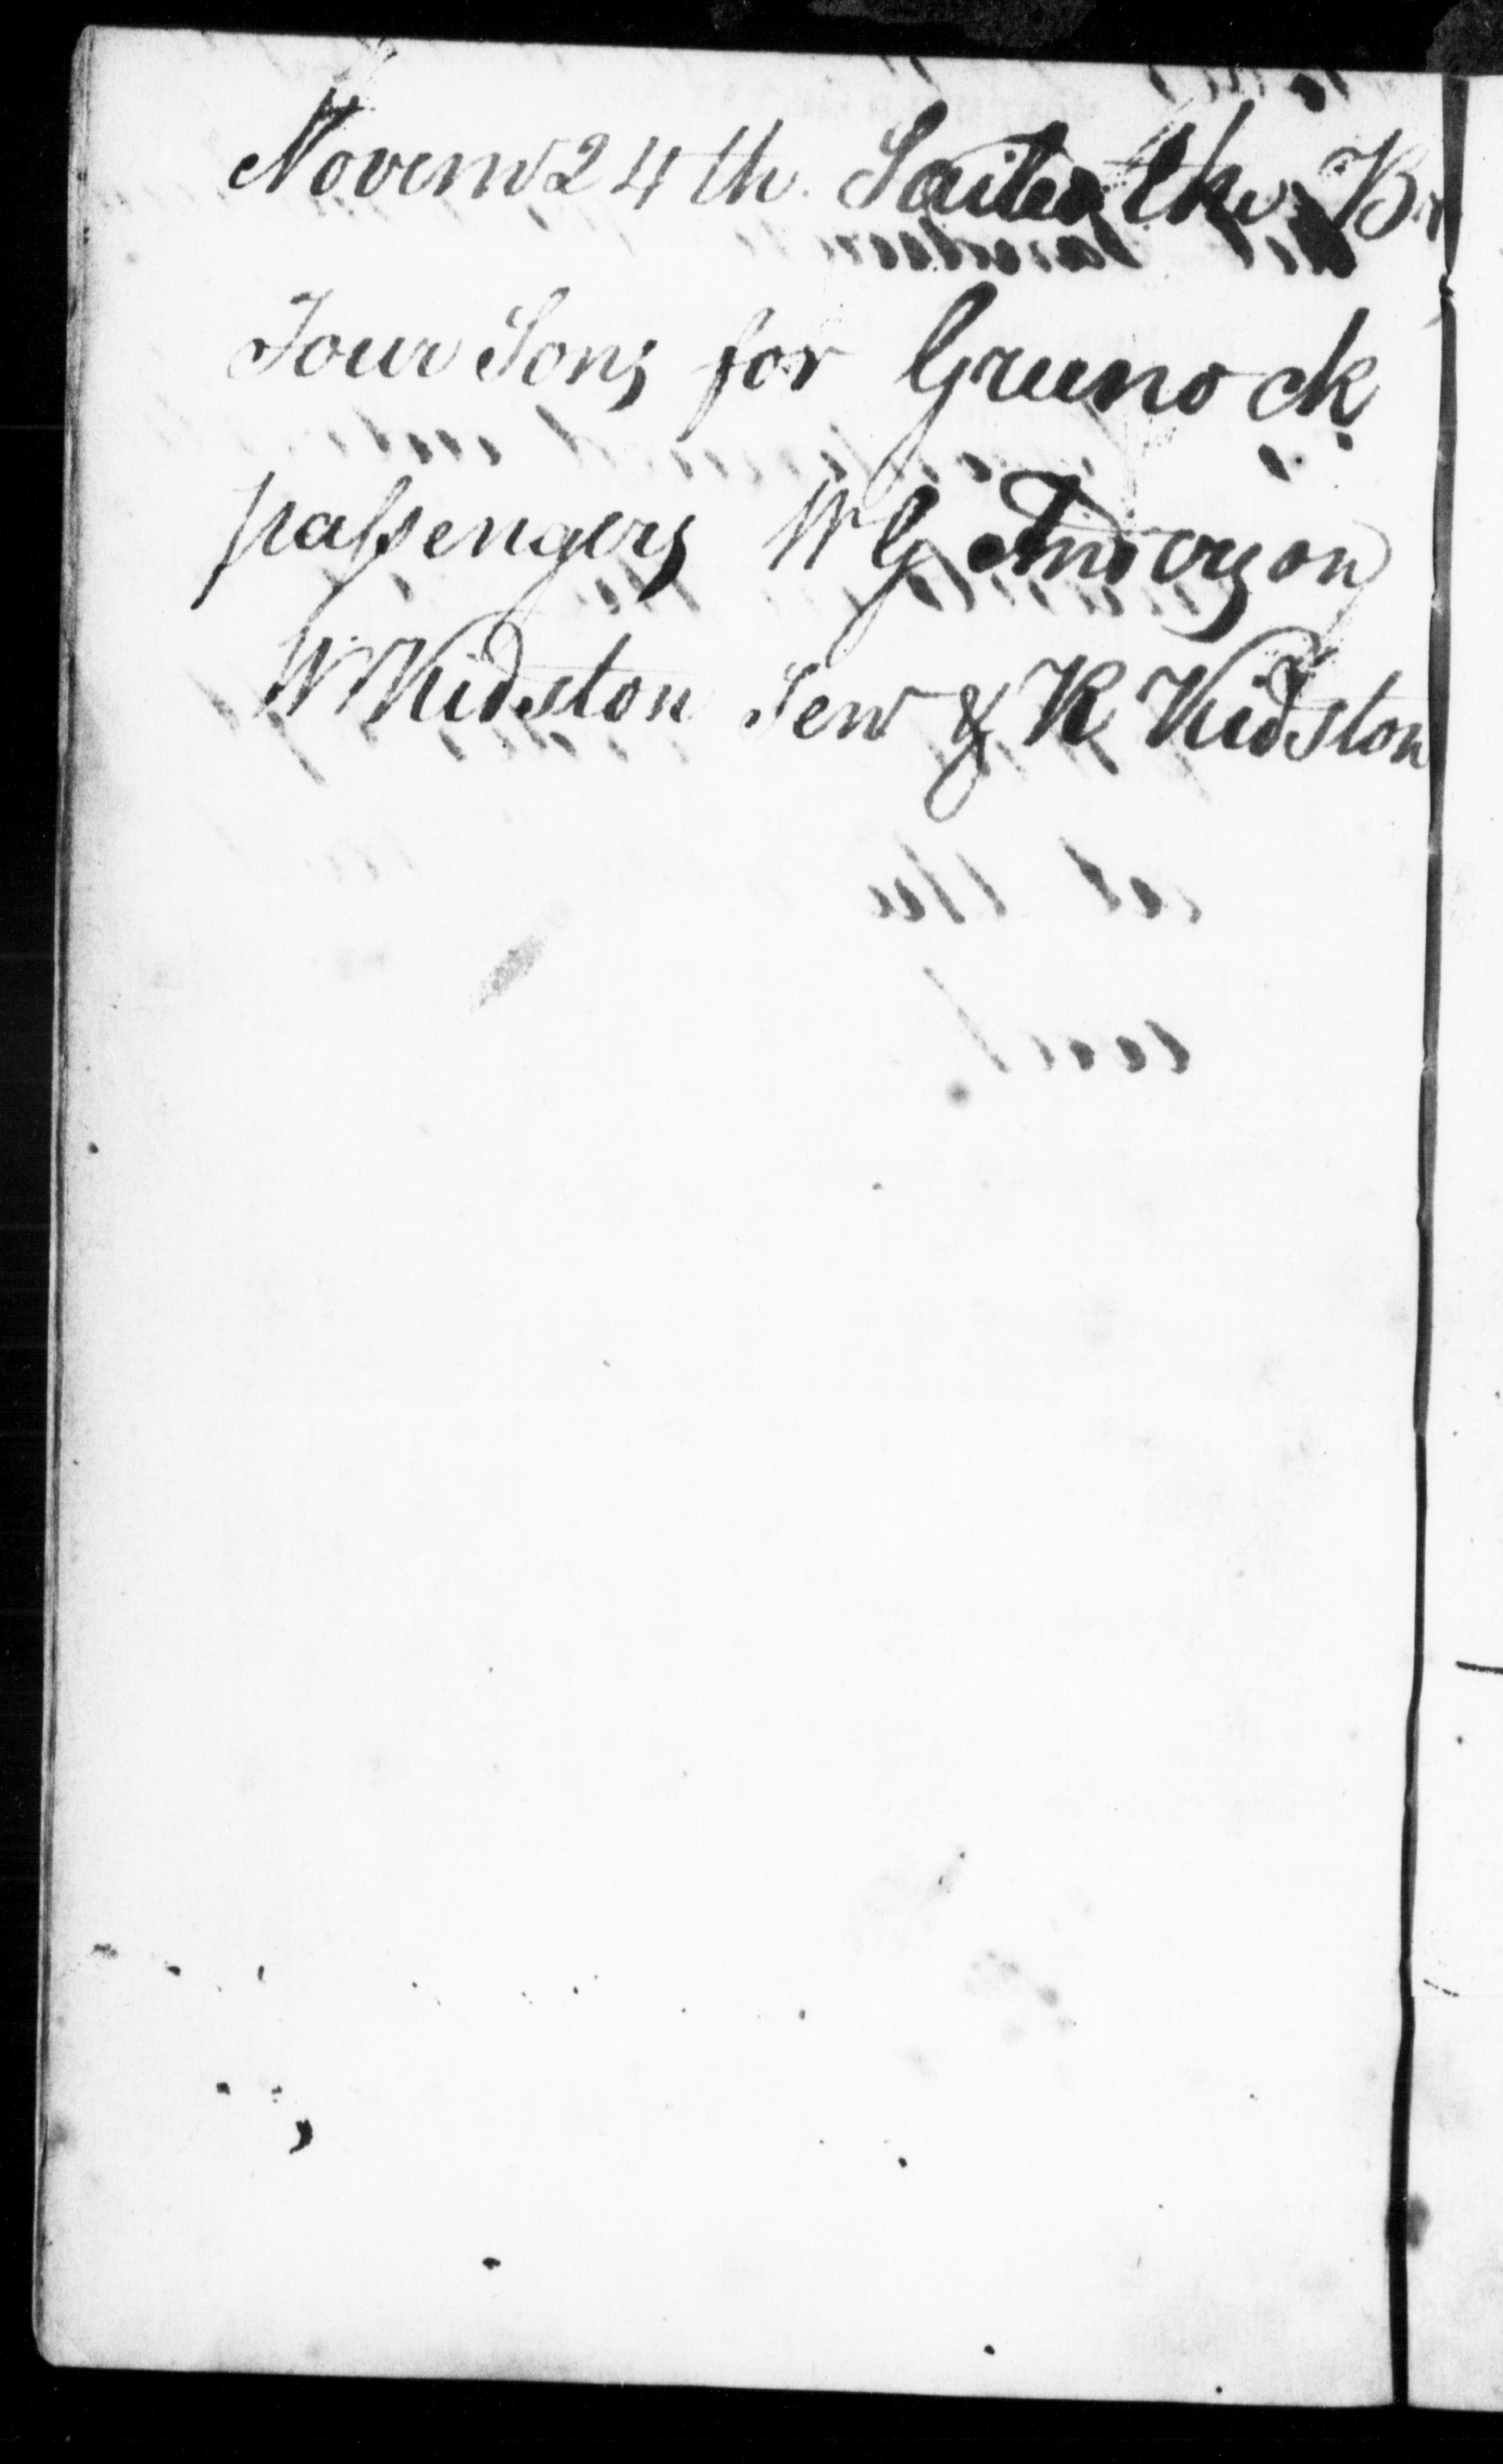 Novem 24th Sailed the Br
Four Sons for Greenock
passengers W G Anderson
W Kidston Sen & R Kidston